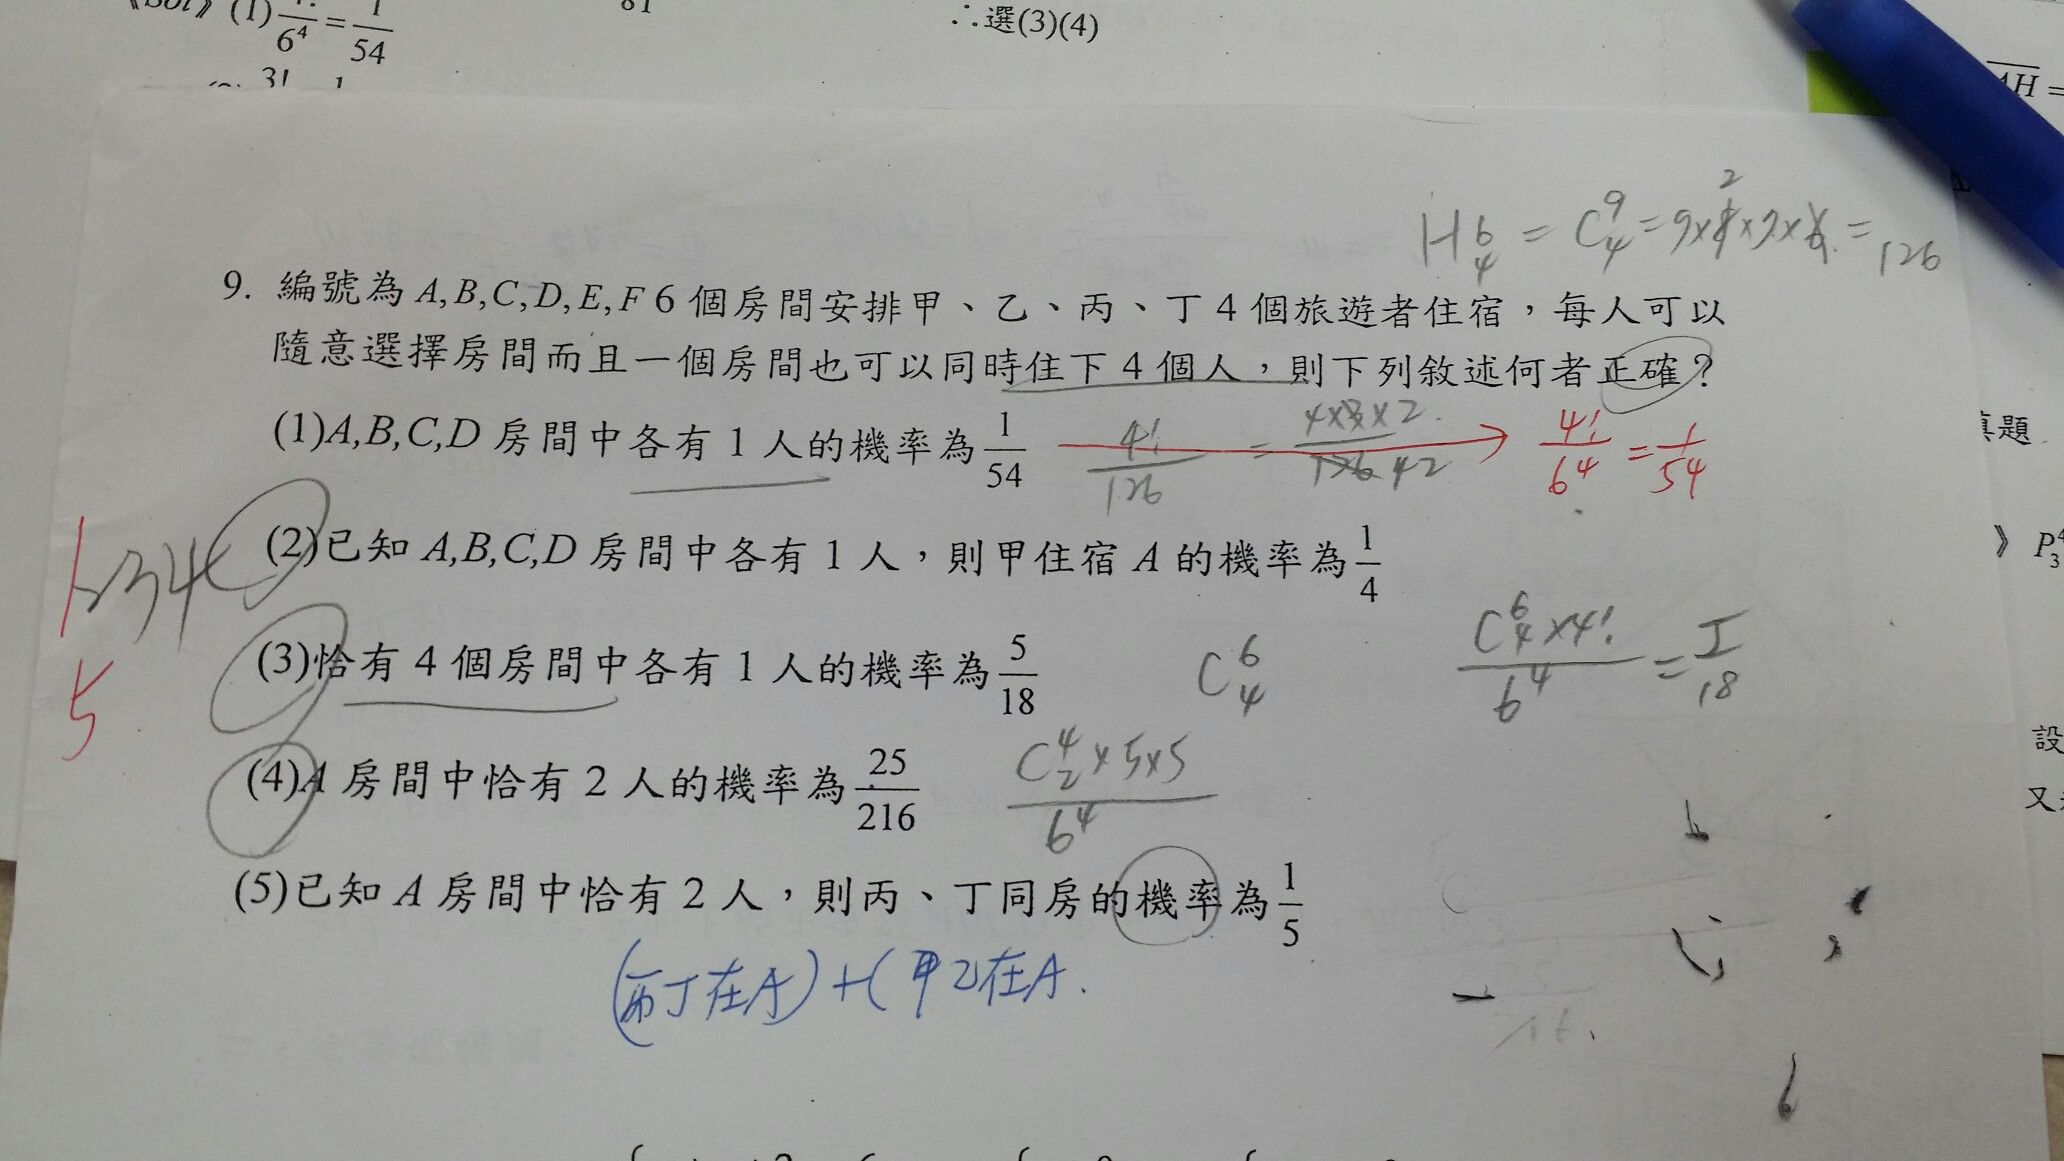 (1) 4!/6⁴ = 1/54
81
∴選(3)(4)
3! 1
AH =
H⁶₄ = C⁹₄ = 126
9. 編號為 A,B,C,D,E,F 6 個房間安排甲、乙、丙、丁 4 個旅遊者住宿，每人可以
隨意選擇房間而且一個房間也可以同時住下 4 個人，則下列敘述何者正確？
(1)A,B,C,D 房間中各有 1 人的機率為 1/54 4!/126 = 4×3×2/126 42 → 4!/6⁴ = 1/54
(2)已知 A,B,C,D 房間中各有 1 人，則甲住宿 A 的機率為 1/4
1234
5
(3)恰有 4 個房間中各有 1 人的機率為 5/18 C⁶₄ C⁶₄×4!/6⁴ = 5/18
(4)A 房間中恰有 2 人的機率為 25/216 C⁴₂×5×5/6⁴
(5)已知 A 房間中恰有 2 人，則丙、丁同房的機率為 1/5
(丙丁在A)+(甲乙在A.
真題
》P⁴₃
設
又